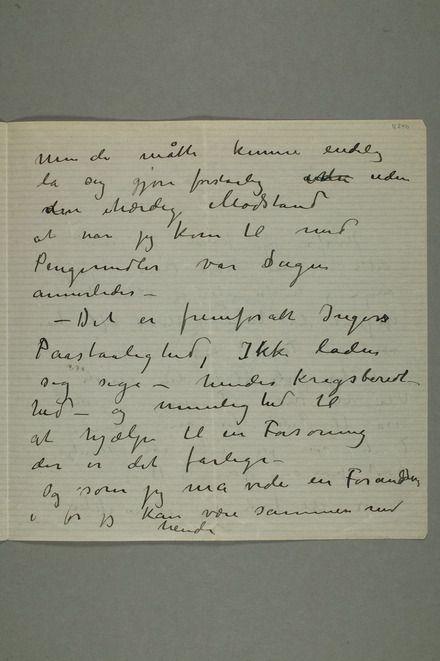 men de måtte kunne endelig
la sig gjøre forståelig uden
ihærdig Modstand
at når jeg kom til med
Pengemidler var Sagen
annerledes –
– Det er fremforalt Ingers
Paastaalighed, Ikke laden
sig sige – hendes Krigsberedt-
hed – og umulighed til
at hjælpe til en Forsoning
der er det farlige –
Og som jeg må vide en Forandring
i før jeg kan være sammen med
hende